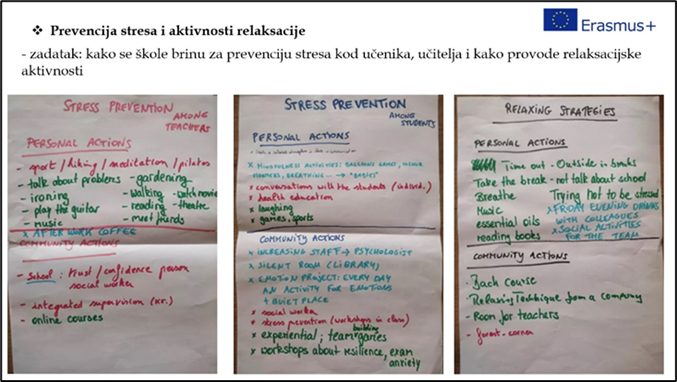 ❖ Prevencija stresa i aktivnosti relaksacije
Erasmus+
- zadatak: kako se škole brinu za prevenciju stresa kod učenika, učitelja i kako provode relaksacijske
aktivnosti
STRESS PREVENTION
AMONG
TEACHERS
PERSONAL ACTIONS
- sport / hiking / meditation / pilates
- talk about problems - gardening
- ironing - walking - watch movie
- play the guitar - reading - theatre
- music - meet friends
x AFTER WORK COFFEE
COMMUNITY ACTIONS
- School: trust / confidence person
social worker
- integrated supervision
- online courses
STRESS PREVENTION
AMONG
STUDENTS
PERSONAL ACTIONS
x MINDFULNESS ACTIVITIES: BALLOONS GAMES,
BREATHING
x conversations with the students (individ.)
x health education
x laughing
x games, sports
COMMUNITY ACTIONS
x INCREASING STAFF → PSYCHOLOGIST
x SILENT ROOM (LIBRARY)
x EMOTION PROJECT: EVERY DAY
AN ACTIVITY FOR EMOTIONS
+ QUIET PLACE
x social worker
x stress prevention (workshops in class)
x experiential; team building games
x workshops about resilience, exam
anxiety
RELAXING STRATEGIES
PERSONAL ACTIONS
Time out - Outside in breaks
Take the break - not talk about school
Breathe Trying not to be stressed
Music x FRIDAY EVENING DRINKS
essential oils WITH COLLEAGUES
reading books x SOCIAL ACTIVITIES
FOR THE TEAM
COMMUNITY ACTIONS
- Bach course
- Relaxing Technique from a company
- Room for teachers
- corner